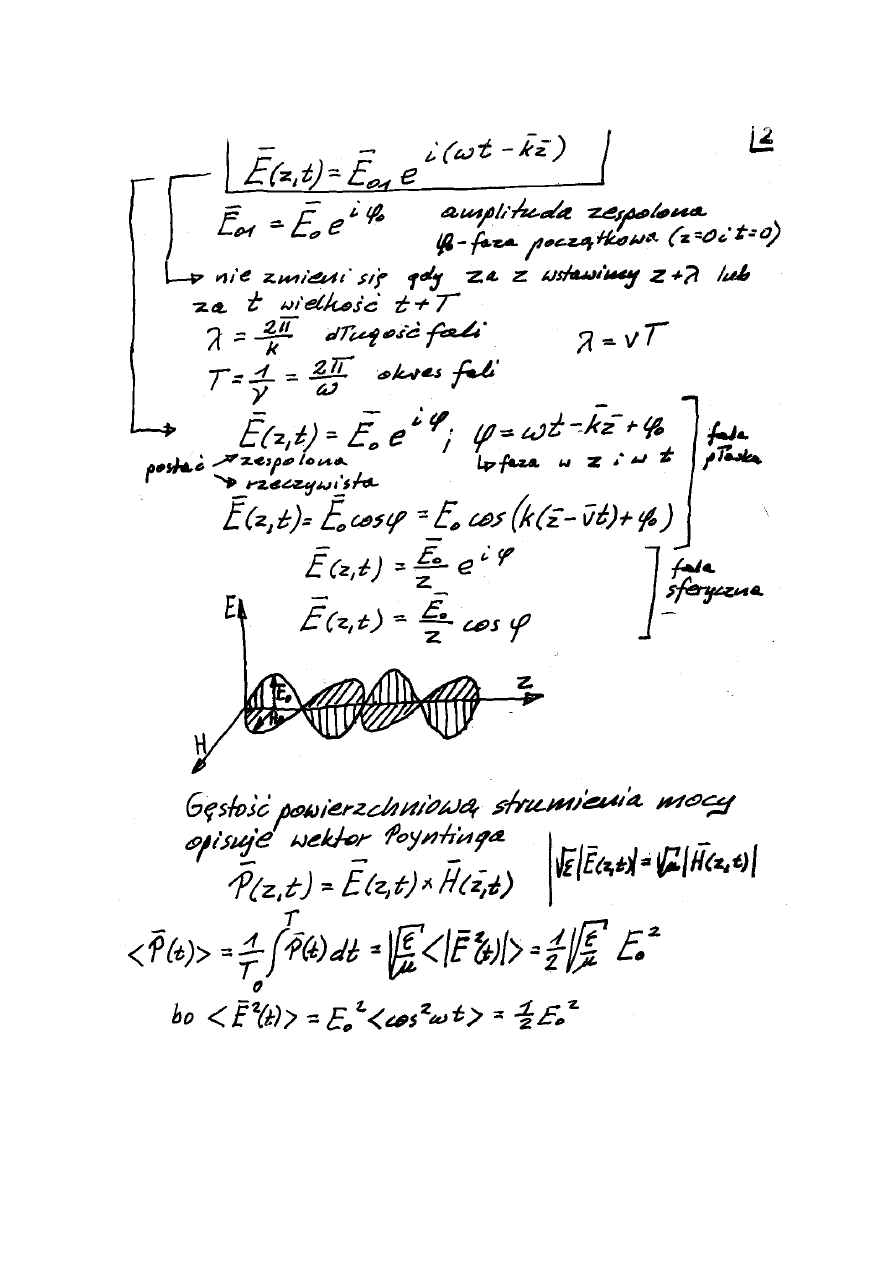 2
Ē(z,t) = Ē₀₁ e^{i(ωt - k̄z̄)}
Ē₀₁ = Ē₀ e^{iφ₀} amplituda zespolona
φ₀-faza początkowa (z=0 i t=0)
nie zmieni się gdy za z wstawimy z+λ lub
za t wielkość t+T
λ = 2π/k długość fali λ = vT
T = 1/γ = 2π/ω okres fali
Ē(z,t) = Ē₀ e^{iφ}; φ = ωt - k̄z̄ + φ₀
postać zespolona faza w z i w t
rzeczywista
fala
płaska
Ē(z,t) = Ē₀ cosφ = E₀ cos(k(z̄ - v̄t) + φ₀)
Ē(z,t) = Ē₀/z e^{iφ}
fala
sferyczna
Ē(z,t) = Ē₀/z cosφ
E
E₀
H₀
Z
H
Gęstość powierzchniową strumienia mocy
opisuje wektor Poyntinga
P̄(z,t) = Ē(z,t) × H̄(z̄,t) √ε|Ē(z,t)| = √μ|H̄(z,t)|
<P̄(t)> = 1/T ∫₀ᵀ P̄(t) dt = √(ε/μ) <|Ē²(t)|> = 1/2 √(ε/μ) E₀²
bo <Ē²(t)> = E₀² <cos²ωt> = 1/2 E₀²